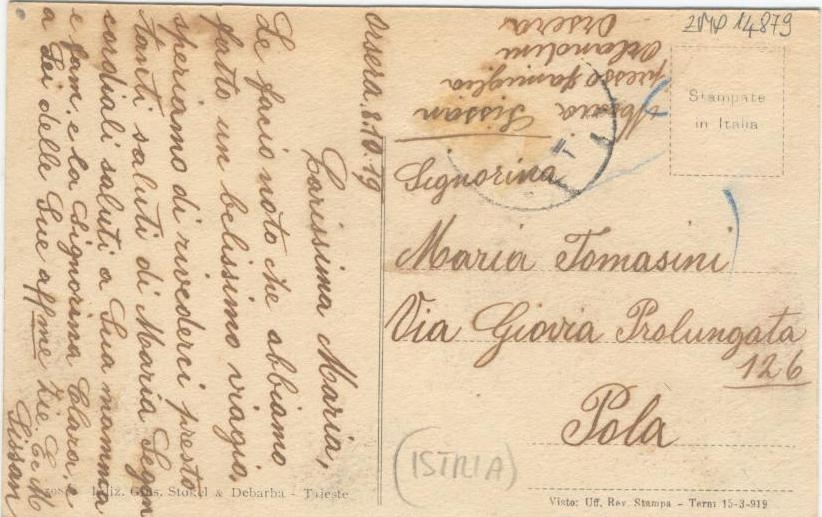 Orsera. 8.10.19
Carissima Maria,
Le facio noto che abbiamo
fatto un belissimo viagio,
speriamo di rivederci presto
tanti saluti di Maria Segn
cordiali saluti a Sua mamma
e fam. e la Signorina Clara, e
a Lei delle Sue affme Zie. E. M
Sissan
Maria Sissan
presso famiglia
Orlandini
Orsera
ZMP 14879
Stampate
in Italia
Signorina
Maria Tomasini
Via Giovia Prolungata
126
Pola
(ISTRIA)
Ediz. Gius. Stokel & Debarba - Trieste
Visto: Uff. Rev. Stampa - Terni 15-3-919